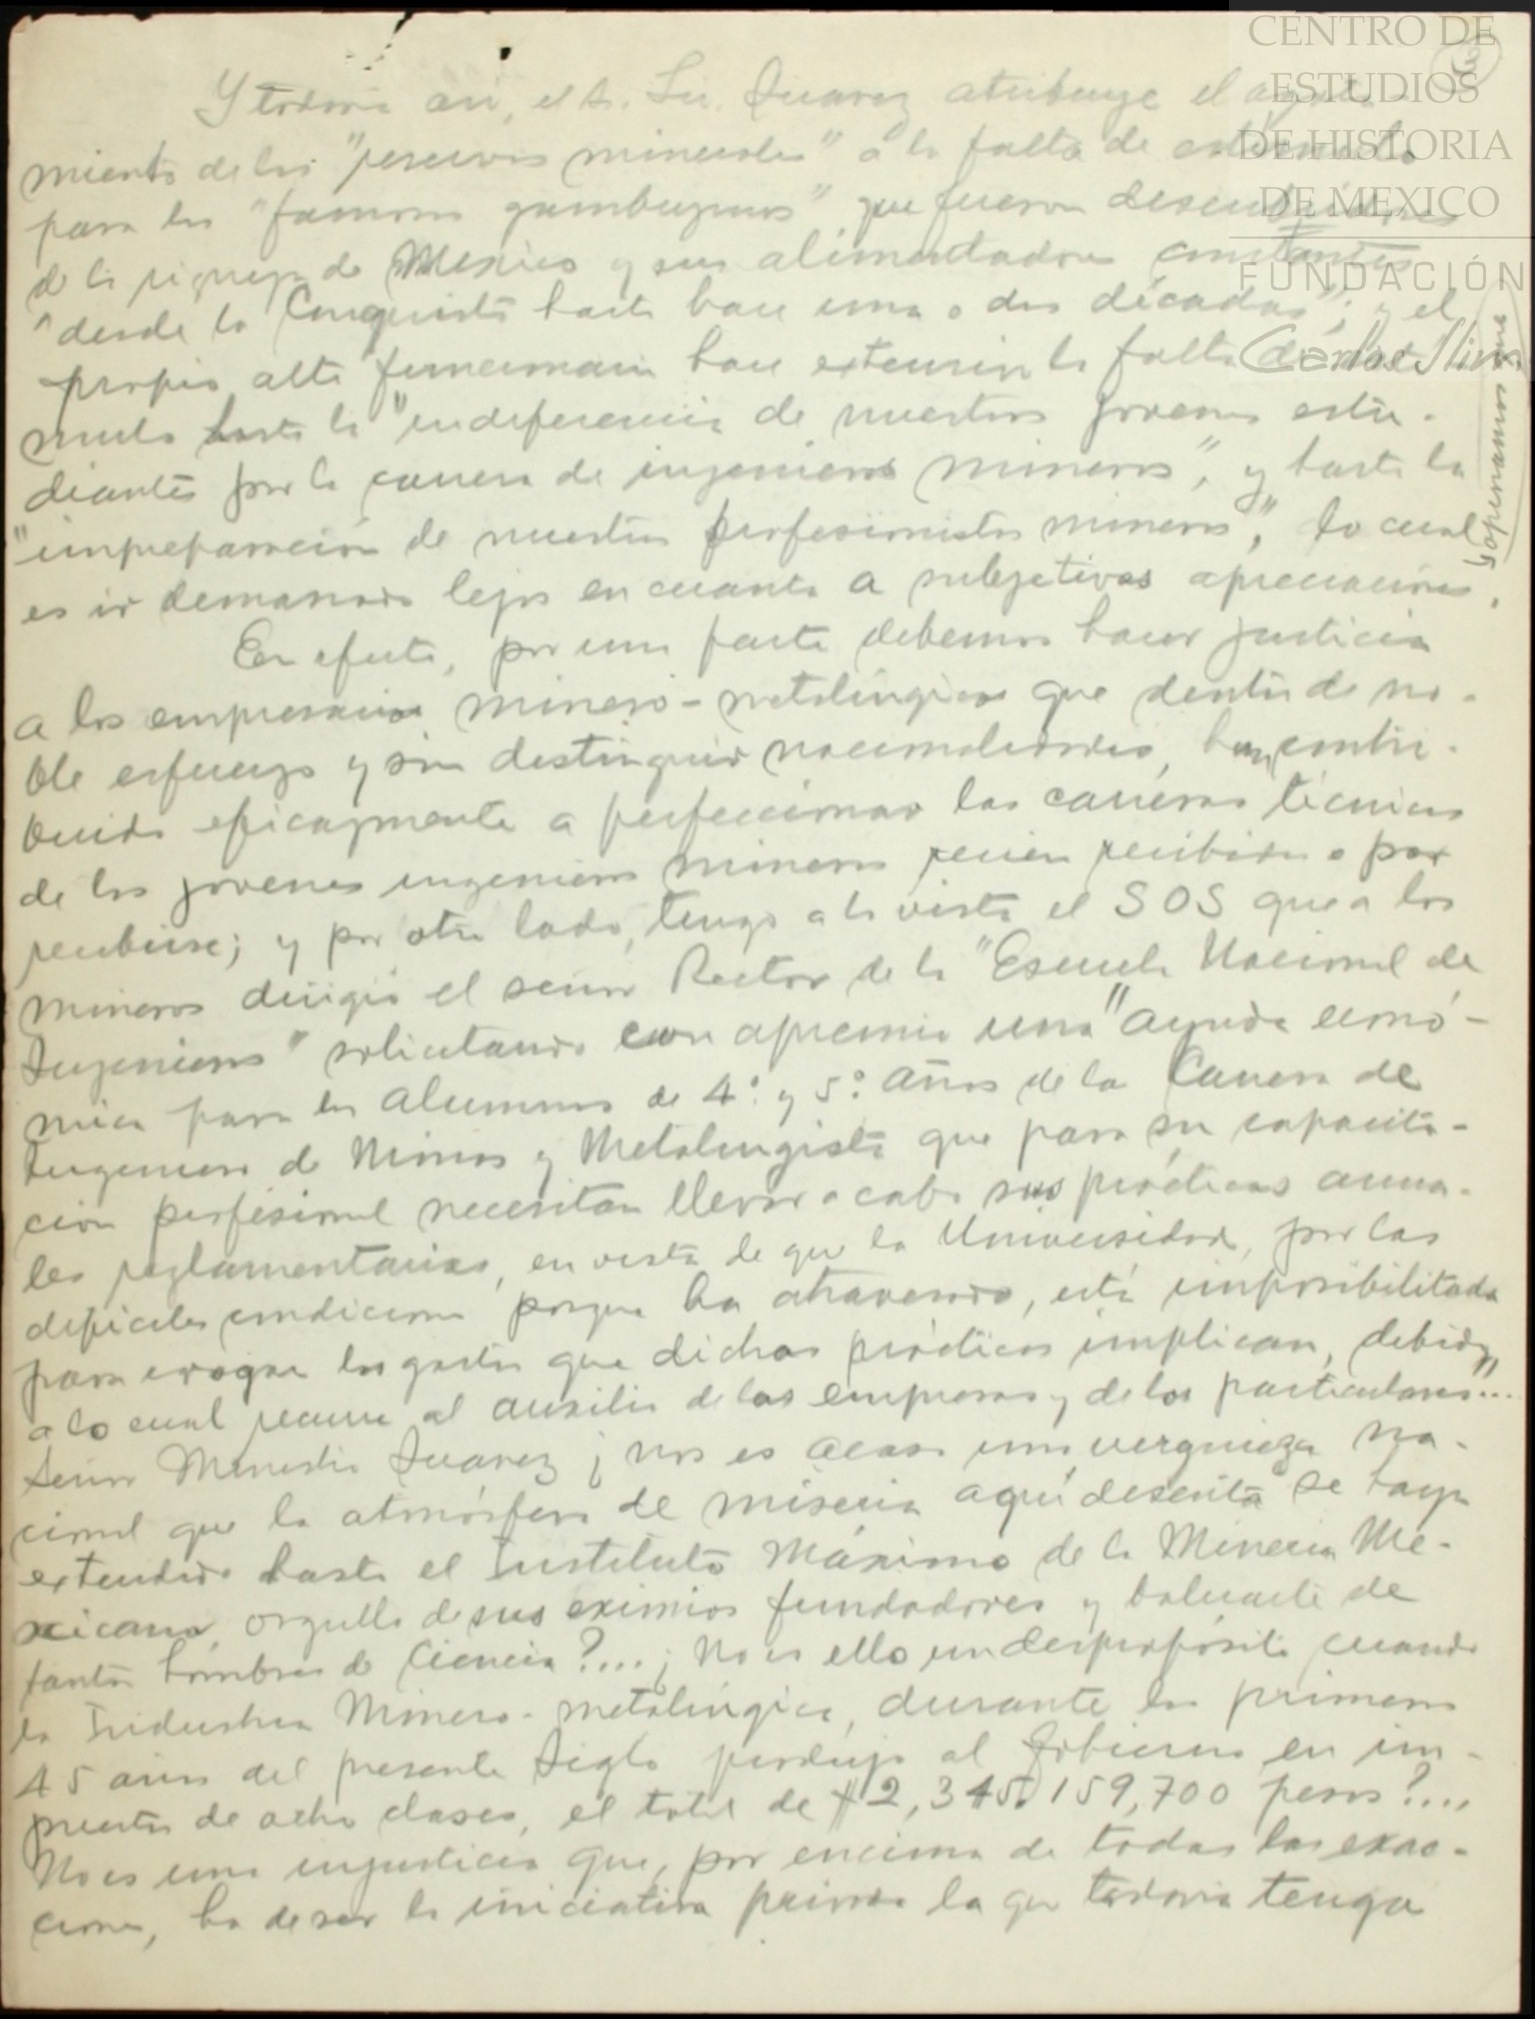 CENTRO DE
ESTUDIOS
DE HISTORIA
DE MEXICO
FUNDACIÓN
Carlos Slim
Y todavia asi, el S. Lic. Suarez atribuye el agota-
miento de las "reservas minerales" a la falta de estimulo
para los "famosos gambuzinos" que fueron descubridores
de la riqueza de Mexico y sus alimentadores constantes
"desde la Conquista hasta hace una o dos décadas"; y el
propio alto funcionario hace extensiva la falta de esti-
mulo hasta la "indiferencia de nuestros jovenes estu-
diantes por la carrera de ingenieros mineros", y hasta la
"impreparación de nuestros profesionistas mineros", lo cual opinamos que
es ir demasiado lejos en cuanto a subjetivas apreciaciones.
En efecto, por una parte debemos hacer justicia
a los empresarios minero-metalúrgicos que dentro de no-
ble esfuerzo y sin distinguir nacionalidades, han contri-
buido eficazmente a perfeccionar las carreras técnicas
de los jovenes ingenieros mineros recien recibidos o por
recibirse; y por otro lado, tengo a la vista el SOS que a los
mineros dirigió el señor Rector de la "Escuela Nacional de
Ingenieros" solicitando con apremio una "ayuda econó-
mica para los alumnos de 4º. y 5º. años de la Carrera de
Ingeniero de Minas y Metalurgista que para su capacita-
cion profesional necesitan llevar a cabo sus prácticas anua-
les reglamentarias, en vista de que la Universidad, por las
dificiles condiciones porque ha atravesado, está imposibilitada
para erogar los gastos que dichas prácticas implican, debido
a lo cual recurre al auxilio de las empresas y de los particulares"...
Señor Ministro Suarez ¿no es acaso una vergüenza na-
cional que la atmósfera de miseria aquí descrita se haya
extendido hasta el Instituto Máximo de la Mineria Me-
xicana, orgullo de sus eximios fundadores y baluarte de
tantos hombres de Ciencia?.... ¿No es ello un despropósito cuando
la Industria Minero-metalúrgica, durante los primeros
45 años del presente Siglo produjo al Gobierno en im-
puestos de ocho clases, el total de $2,345.159,700 pesos?....
No es una injusticia que, por encima de todas las exac-
ciones, ha de ser la iniciativa privada la que todavia tenga